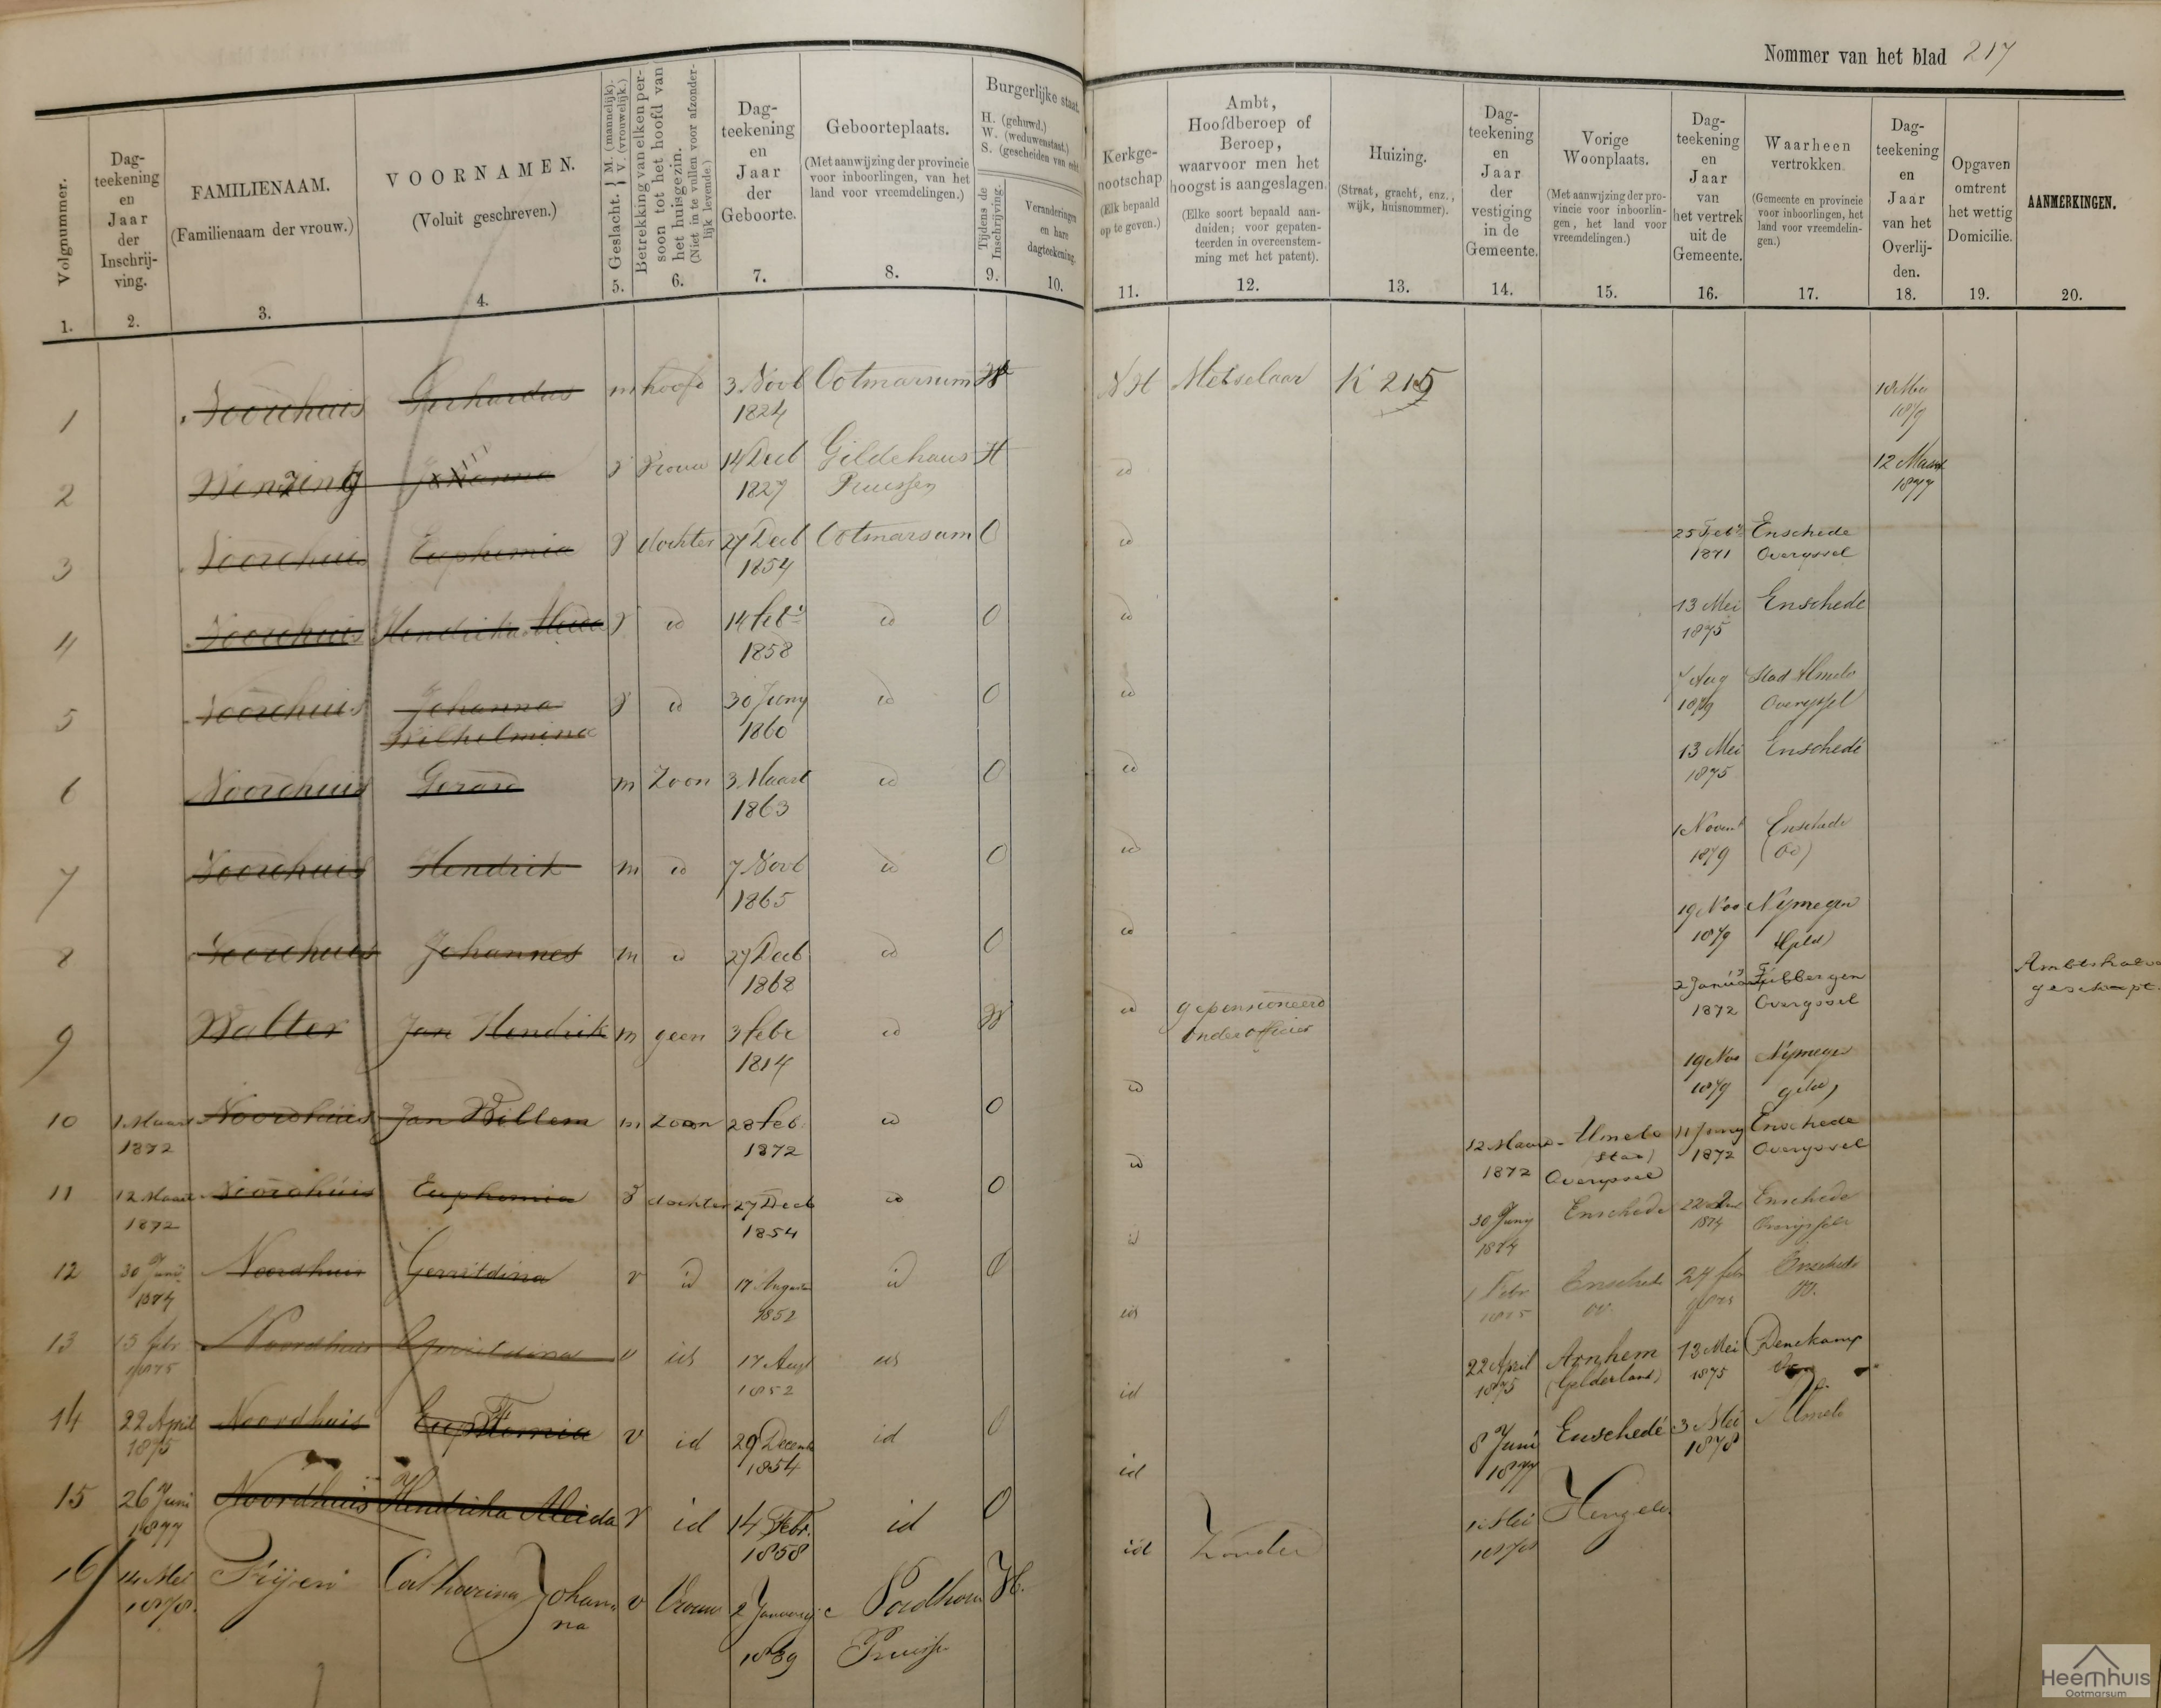 Nommer van het blad 217
Volgnummer.
1.
Dag-
teekening
en
Jaar
der
Inschrij-
ving.
2.
FAMILIENAAM.
(Familienaam der vrouw.)
3.
VOORNAMEN.
(Voluit geschreven.)
4.
Geslacht. { M. (mannelijk). V. (vrouwelijk.)
5.
Betrekking van elken per-
soon tot het hoofd van
het huisgezin.
(Niet in te vullen voor afzonder-
lijk levende.)
6.
Dag-
teekening
en
Jaar
der
Geboorte.
7.
Geboorteplaats.
(Met aanwijzing der provincie
voor inboorlingen, van het
land voor vreemdelingen.)
8.
Burgerlijke staat.
H. (gehuwd.)
W. (weduwenstaat.)
S. (gescheiden van echt
Tijdens de
Inschrijving.
9.
Veranderingen
en hare
dagteekening.
10.
Kerkge-
nootschap
(Elk bepaald
op te geven.)
11.
Ambt,
Hoofdberoep of
Beroep,
waarvoor men het
hoogst is aangeslagen.
(Elke soort bepaald aan-
duiden; voor gepaten-
teerden in overeenstem-
ming met het patent).
12.
Huizing.
(Straat, gracht, enz.,
wijk, huisnommer).
13.
Dag-
teekening
en
Jaar
der
vestiging
in de
Gemeente.
14.
Vorige
Woonplaats.
(Met aanwijzing der pro-
vincie voor inboorlin-
gen, het land voor
vreemdelingen.)
15.
Dag-
teekening
en
Jaar
van
het vertrek
uit de
Gemeente.
16.
Waarheen
vertrokken.
(Gemeente en provincie
voor inboorlingen, het
land voor vreemdelin-
gen.)
17.
Dag-
teekening
en
Jaar
van het
Overlij-
den.
18.
Opgaven
omtrent
het wettig
Domicilie.
19.
AANMERKINGEN.
20.
1 Noordhuis Gerhardus m hoofd 3 Novb Ootmarsum NH Metselaar K 215
1824 1879
2 Johanna Vrouw 14 Decb Gildehaus H id 12 Maart
1827 Pruissen 1877
3 Noordhuis Euphemia dochter 27 Decb Ootmarsum O id 25 Feb Enschede
1854 1871 Overyssel
4 Noordhuis Hendrika id 14 Feb id O id 13 Mei Enschede
1858 1875
5 Noordhuis Johanna id 30 Juny id O id Aug Stad Almelo
Wilhelmina 1860 1879 Overyssel
6 Noordhuis Gerard m Zoon 3 Maart id O id 13 Mei Enschedé
1863 1875
7 Noordhuis Hendrik m id 7 Novb id O id 1 Novemb Enschede
1865 1879
8 Noordhuis Johannes m id 27 Decb id O id 19 Nov Nijmegen
1868 1879 Geld)
9 Walter Jan Hendrik m geen 3 Febr id W id gepensioneerd 2 Januari Tubbergen Ambtshalve
1814 onderofficier 1872 Overyssel
10 1 Maart Noordhuis Jan Willem m Zoon 28 Feb. id O id 19 Nov Nijmegen
1872 1872 1879
11 12 Maart Noordhuis Euphemia dochter 27 Decb id O id 12 Maart Almelo 11 Juny Enschede
1872 1854 1872 (Stad) Overyssel 1872 Overyssel
12 30 Juni Noordhuis Gerritdina v id 17 Augustus id O id 30 Juny Enschede 22 Enschede
1874 1852 1874 1874
13 15 febr Noordhuis Gerritdina v id 17 Aug id id 1 Febr Enschede 27 febr Enschede
1875 1852 1875 ov. 1875 ov.
14 22 April Noordhuis Euphemia v id 29 Decemb id O id 22 April Arnhem 13 Mei Denekamp
1875 1854 1875 (Gelderland) 1875
15 26 Juni Noordhuis Hendrika Aleida v id 14 Febr. id O id 8 Juni Enschedé 3 Mei Almelo
1877 1858 1877 1878
16 14 Mei Catharina Johan- v Vrouw 2 January H. id Zonder Mei Hengelo
1878. na 1839 Pruissen 1878
Heemhuis
Ootmarsum